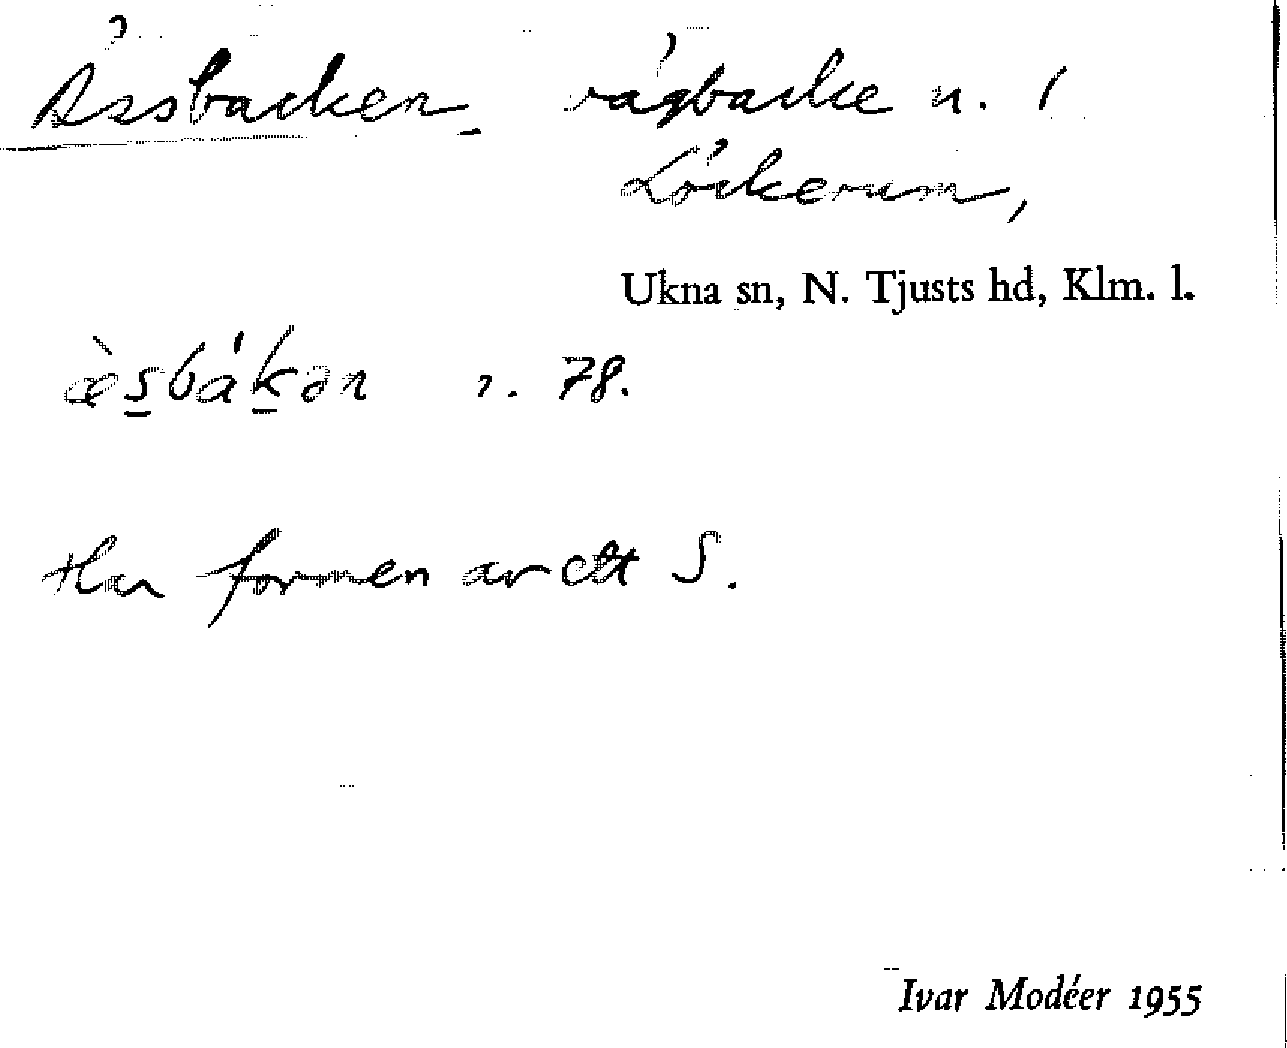 Ässbacken, vägbacke n. 1
Löckerum,
Ukna sn, N. Tjusts hd, Klm. l.
æ̀s̲bák̲ən r. 78.
Har formen av ett S.
Ivar Modéer 1955